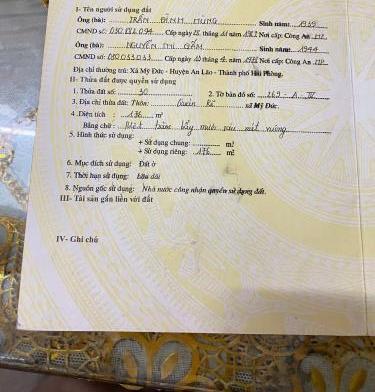 I- Tên người sử dụng đất
Ông (bà): TRẦN ĐÌNH HÙNG Sinh năm: 1939
CMND số: Cấp ngày tháng năm Nơi cấp: Công An HP
Ông (bà): NGUYỄN THỊ GẤM Sinh năm: 1944
CMND số: 030033033 Cấp ngày tháng năm Nơi cấp: Công An HP
Địa chỉ thường trú: Xã Mỹ Đức - Huyện An Lão - Thành phố Hải Phòng.
II- Thửa đất được quyền sử dụng
1. Thửa đất số: 30 2. Tờ bản đồ số: 269 - A - IV
3. Địa chỉ thửa đất: Thôn: Quán Rẽ xã Mỹ Đức.
4. Diện tích : 176 m²
Bằng chữ: Một trăm bảy mươi sáu mét vuông
5. Hình thức sử dụng:
+ Sử dụng chung: m²
+ Sử dụng riêng: 176 m²
6. Mục đích sử dụng: Đất ở
7. Thời hạn sử dụng: Lâu dài
8. Nguồn gốc sử dụng: Nhà nước công nhận quyền sử dụng đất.
III- Tài sản gắn liền với đất
IV- Ghi chú